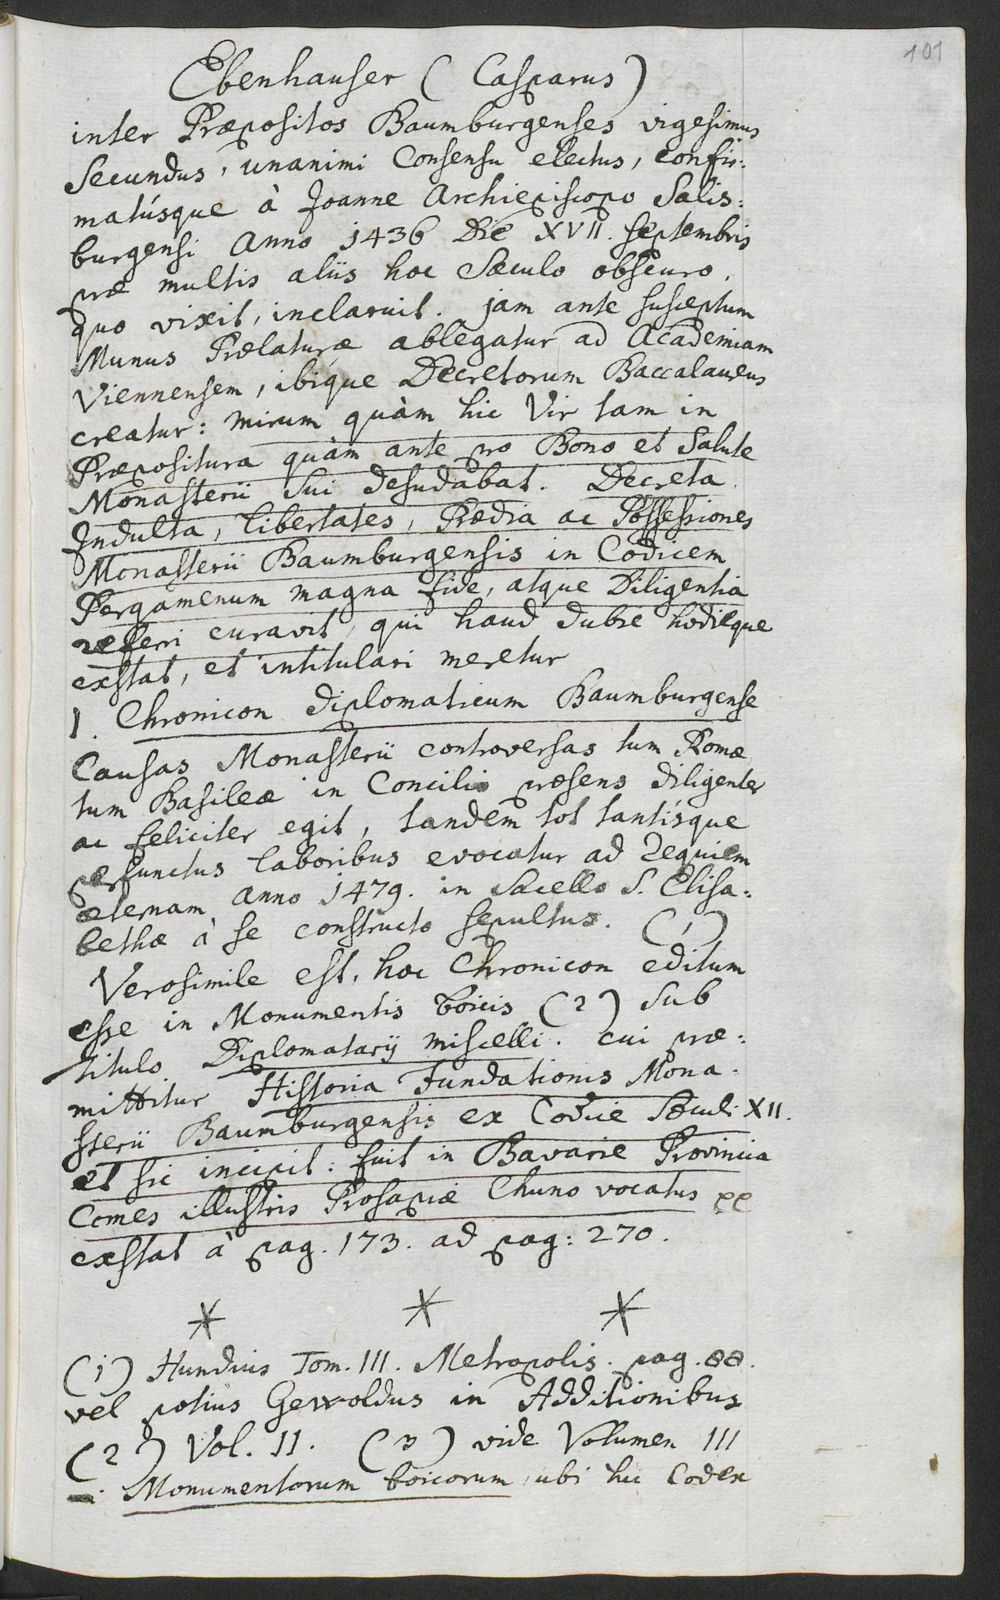 101
Ebenhauser (Casparus)
inter Præpositos Baumburgenses vigesimus
Secundus, unanimi Consensu electus, confir:
matúsque à Joanne Archiepiscopo Salis:
burgensi Anno 1436 Die XVII. Septembris
præ multis aliis hoc Sæculo obscuro,
quo vixit, inclaruit. jam ante susceptum
Munus Prælaturæ ablegatur ad Academiam
Viennensem, ibique Decretorum Baccalaureus
creatur: mirum quàm hic Vir tam in
Præpositura quàm ante pro Bono et Salute
Monasterii Sui desudabat. Decreta
Indulta, Libertates, Prædia ac Possessiones
Monasterii Baumburgensis in Codicem
Pergamenum magna fide, atque Diligentia
referri curavit, qui haud dubie hodieque
exstat, et intitulari meretur
1. Chronicon Diplomaticum Baumburgense
Causas Monasterii controversas tum Romæ
tum Basileæ in Concilio præsens diligenter
ac feliciter egit, tandem tot tantísque
perfunctus laboribus evocatur ad requiem
æternam anno 1479. in Sacello S. Elisa:
bethæ à se constructo sepultus. (1)
Verosimile est, hoc Chronicon editum
esse in Monumentis boicis (2) sub
titulo Diplomatarij miscelli. cui præ:
mittitur Historia Fundationis Mona:
sterii Baumburgensis ex Codice Sæculi XII.
et sic incipit: fuit in Bavarie Provincia
Comes illustris Prosapiæ Chuno vocatus
exstat à pag. 173. ad pag: 270.
* * *
(1) Hundius Tom. III. Metropolis. pag. 88.
vel potius Gewoldus in Additionibus
(2) Vol. II. (3) vide Volumen III
Monumentorum boicorum, ubi hic Codex